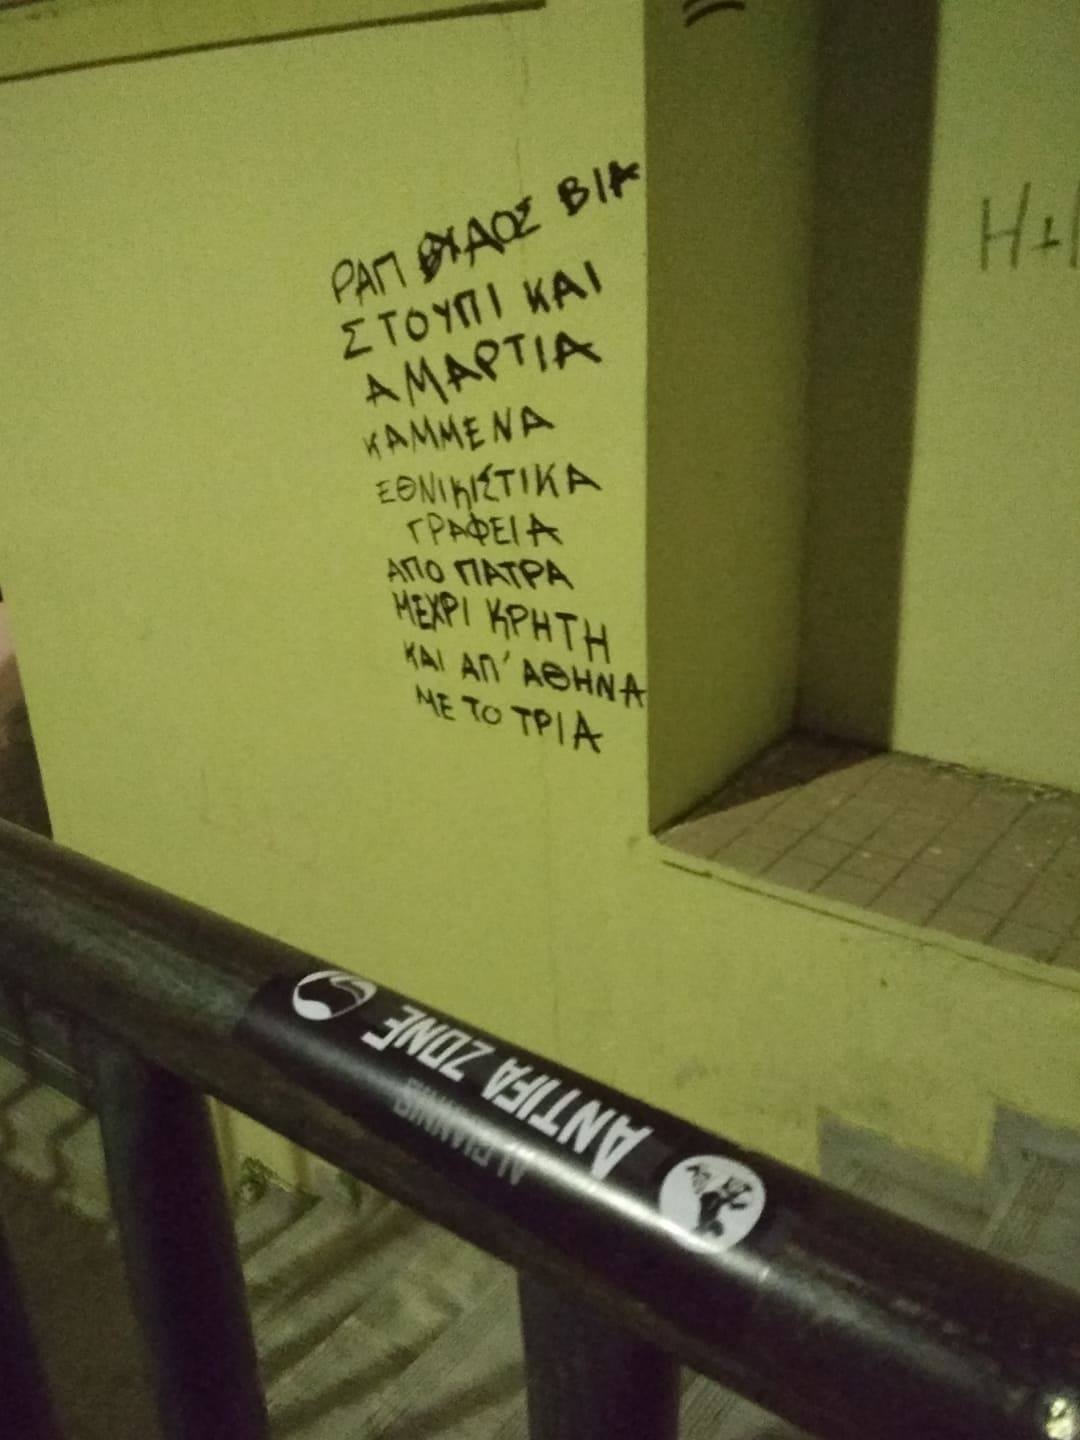 ΡΑΠ ΧΥΔΟΣ ΒΙΑ
ΣΤΟΥΠΙ ΚΑΙ
ΑΜΑΡΤΙΑ
ΚΑΜΜΕΝΑ
ΕΘΝΙΚΙΣΤΙΚΑ
ΓΡΑΦΕΙΑ
ΑΠΟ ΠΑΤΡΑ
ΜΕΧΡΙ ΚΡΗΤΗ
ΚΑΙ ΑΠ' ΑΘΗΝΑ
ΜΕ ΤΟ ΤΡΙΑ
ANTIFA ZONE